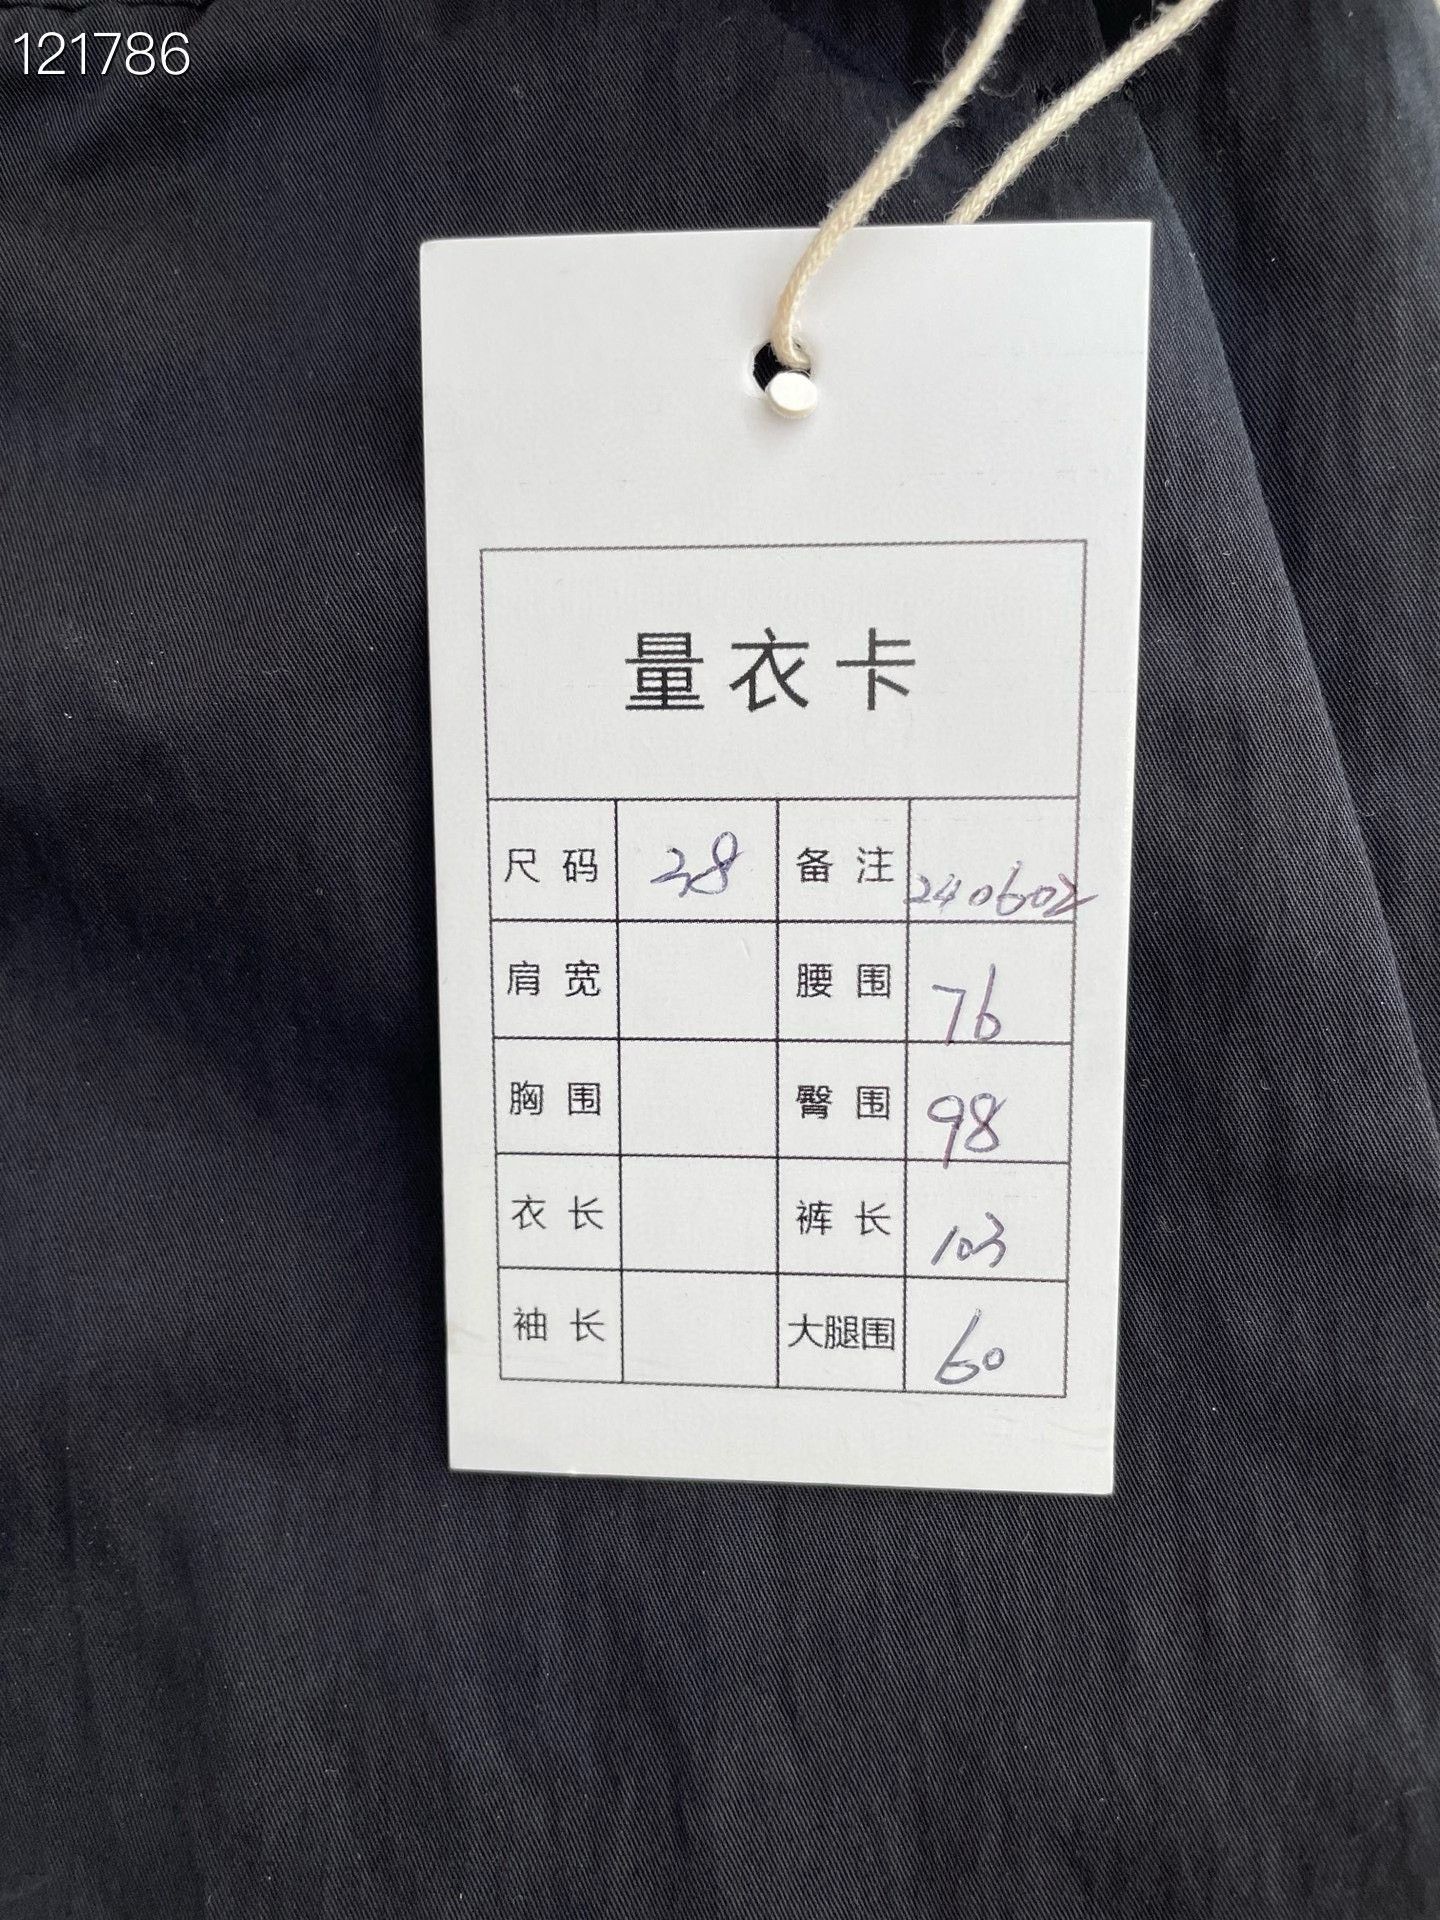 121786
量衣卡
尺码 28 备注 240602
肩宽 腰围 76
胸围 臀围 98
衣长 裤长 103
袖长 大腿围 60